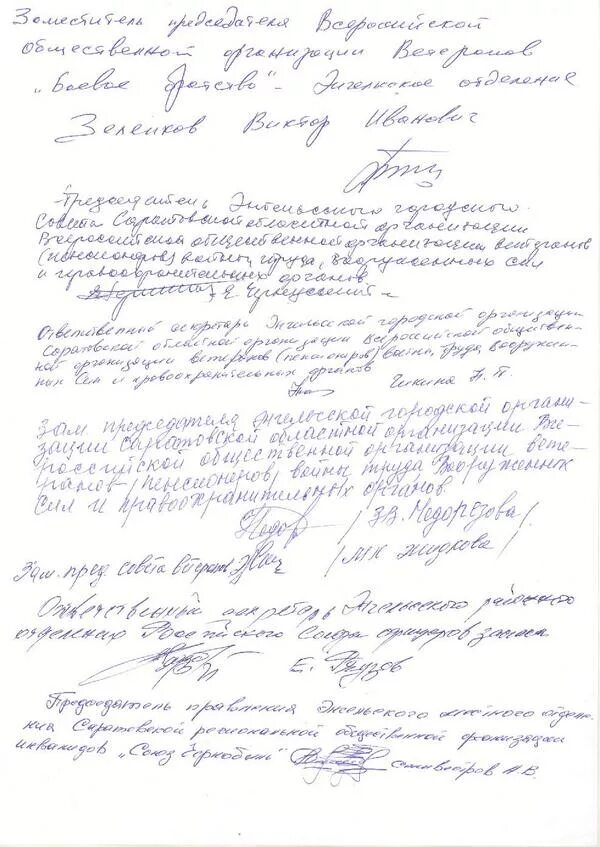 Заместитель председателя Всероссийской
общественной организации Ветеранов
„Боевое братство" - Энгельское отделение
Зеленков Виктор Иванович
Председатель Энгельсского городского
Совета Саратовской областной организации
Всероссийской общественной организации ветеранов
(пенсионеров) войны, труда, вооруженных сил
и правоохранительных органов
Ответственный секретарь Энгельсской городской организации
Саратовской областной организации Всероссийской обществен-
ной организации ветеранов (пенсионеров) войны, труда, вооружен-
ных сил и правоохранительных органов
Чикина Н. П.
Зам. председателя Энгельсской городской органи-
зации Саратовской областной организации Все-
российской общественной организации вете-
ранов (пенсионеров) войны, труда Вооруженных
Сил и правоохранительных органов.
/З.В. Недорезова/
Зам. пред. совета ветеранов /М.К. Жидкова/
Ответственный секретарь Энгельсского районного
отделения Российского Союза офицеров запаса
Е.
Председатель правления Энгельского местного отделе-
ния Саратовской региональной общественной организации
инвалидов „Союз Чернобыль" А.В.